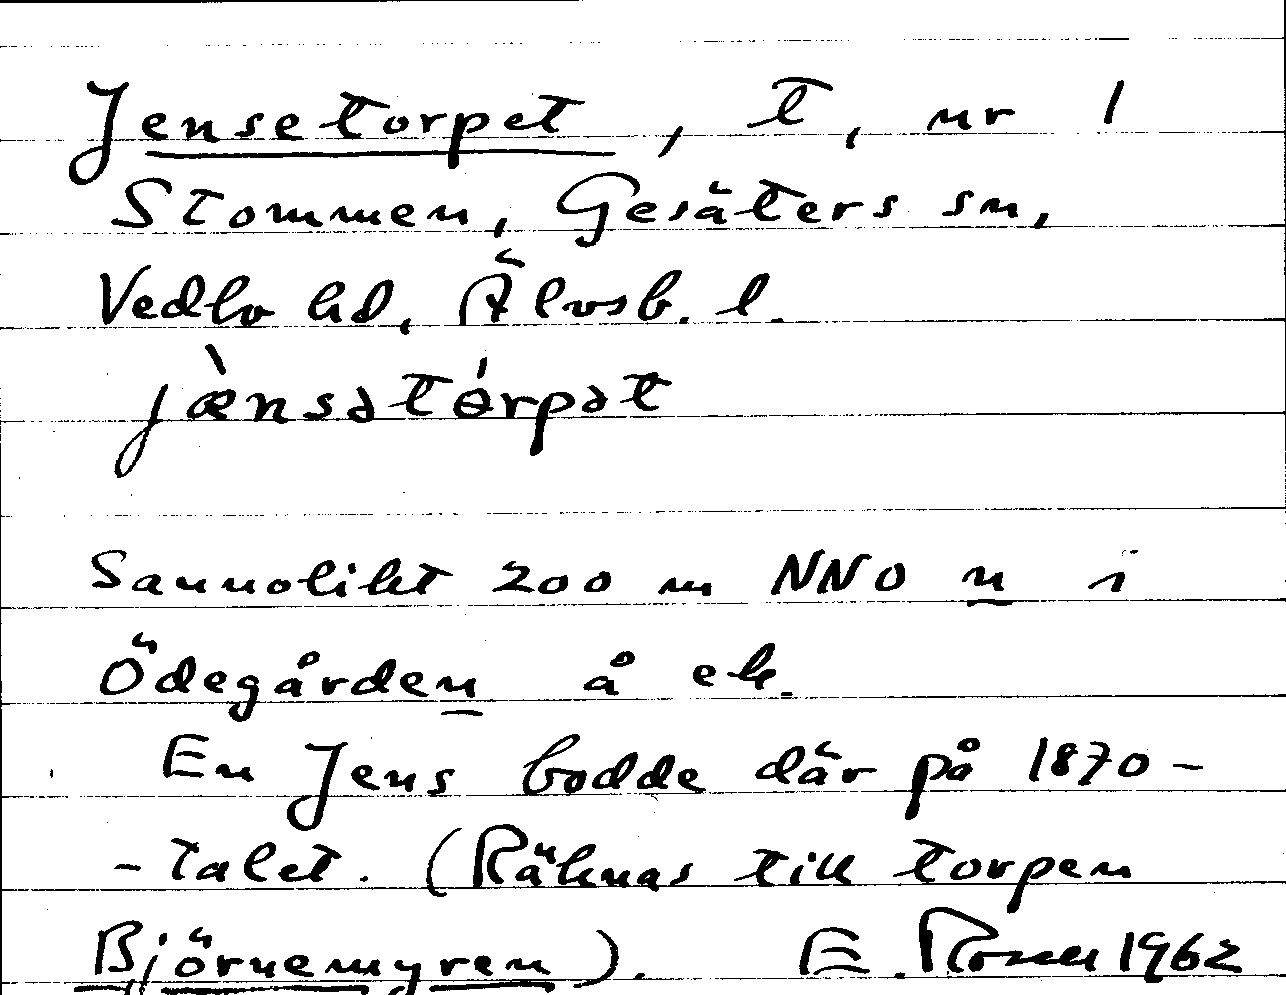 Jensetorpet, t, nr 1
Stommen, Gesäters sn,
Vedbo hd, Älvsb. l.
jæ̀nsətórpət
Sannolikt 200 m NNO n i
Ödegården å ek.
En Jens bodde där på 1870-
-talet. (Räknas till torpen
Björnemyren). E. Rosell 1962